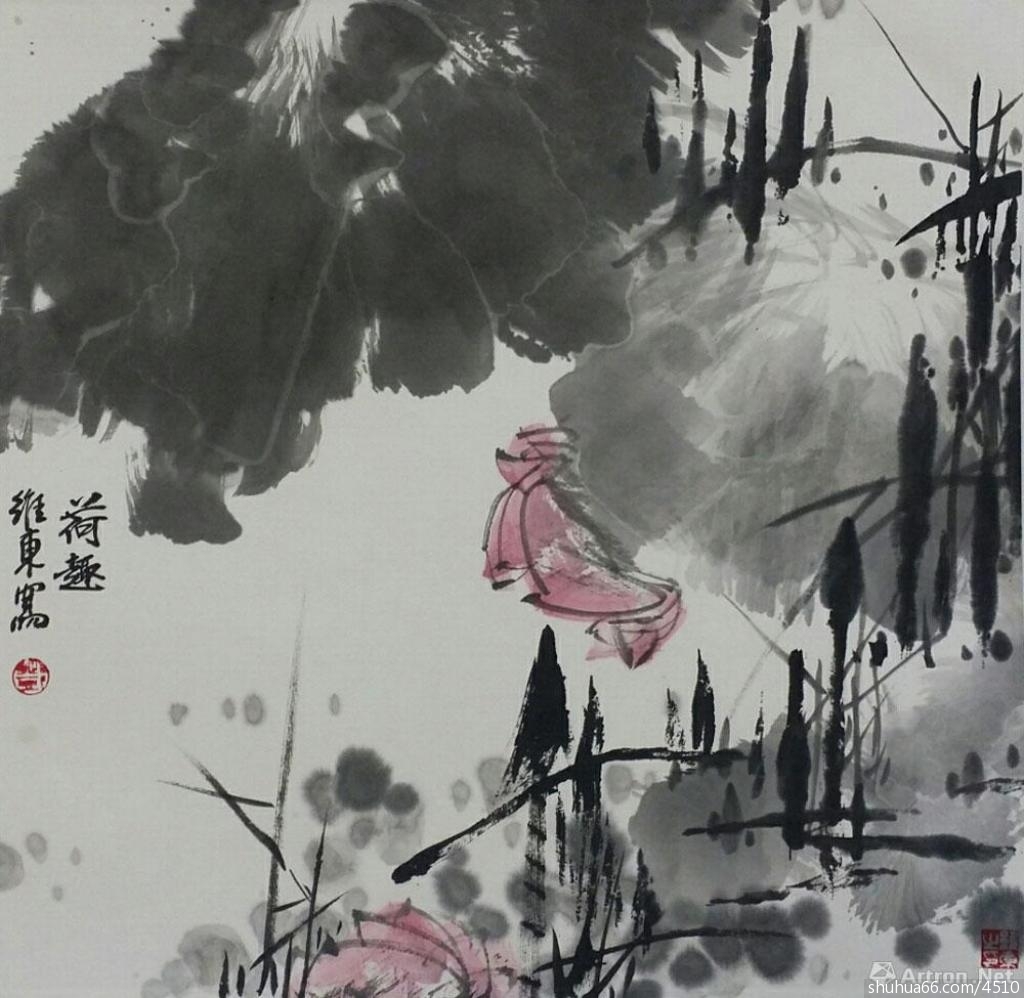 荷趣
維東寫
Artron.Net
shuhua66.com/4510